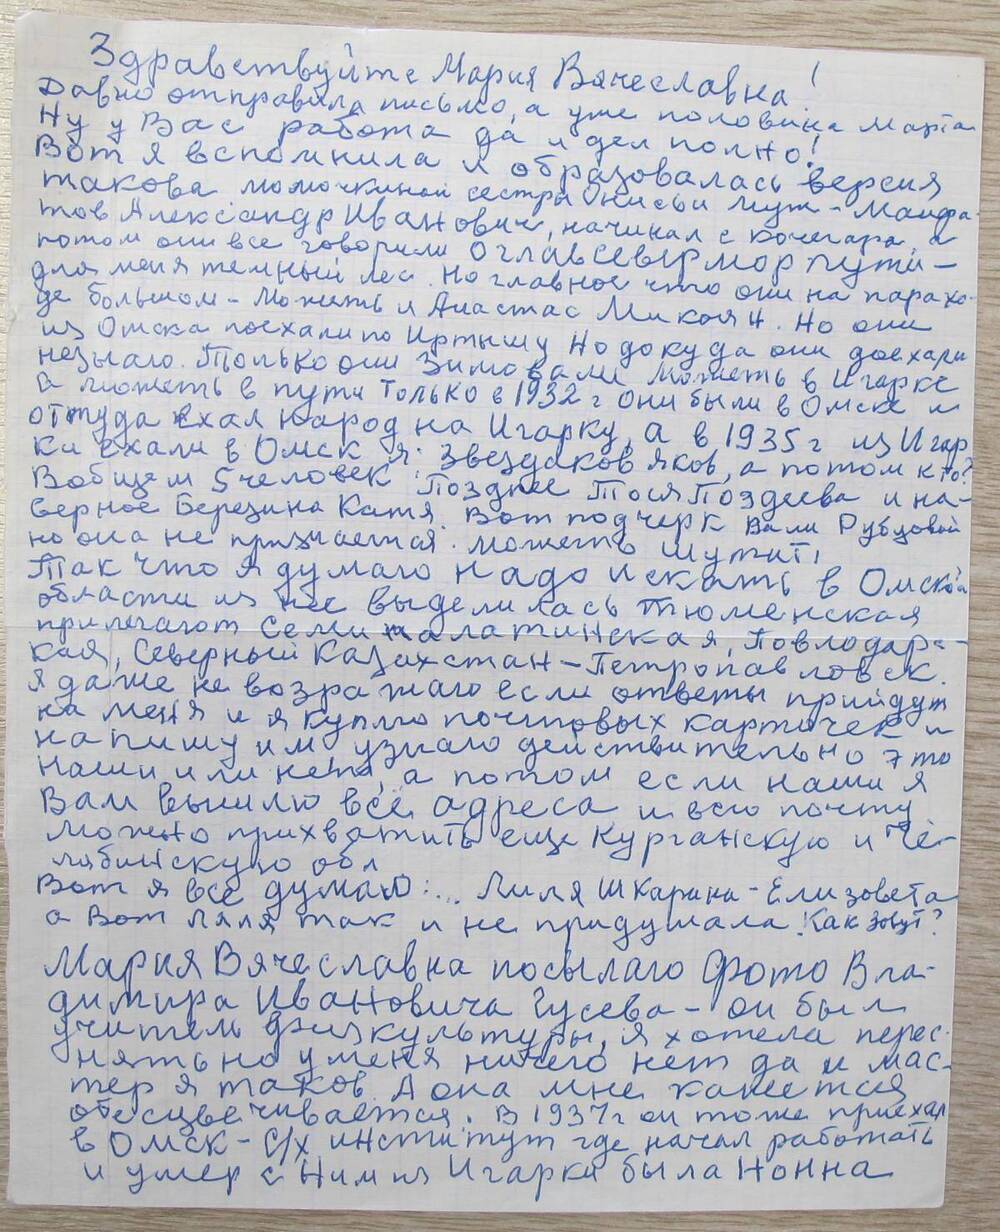 Здравствуйте Мария Вячеславна!
Давно отправила письмо, а уже половина марта
Ну у Вас работа да и дел полно!
Вот я вспомнила и образовалась версия
такова мамочкиной сестры Онисьи муж - Манфа-
тов Александр Иванович, начинал с кочегара, а
потом они все говорили о главсевермор пути -
для меня темный лес. Но главное что они на парахо-
де большом - Можеть и Анастас Микоян. Но они
из Омска поехали по Иртышу но докуда они доехали
незнаю. Только они Зимовали можеть в Игарке
а можеть в пути только в 1932 г они были в Омске и
оттуда ехал народ на Игарку, а в 1935 г из Игар
ки ехали в Омск я: Звездаков Яков, а потом кто?
Вобщем 5 человек. Позднее Тося Поздеева и на-
верное Березина Катя. Вот подчерк Вали Рубцовой
но она не признается. Можеть шутит!
Так что я думаю надо искать в Омской
области из нее выделилась Тюменская
прилегают Семипалатинская, Повлодарс-
кая, Северный Казахстан - Петропавловск.
Я даже не возражаю если ответы прийдут
на меня и я куплю почтовых карточек и
напишу им узнаю действительно это
наши или нет, а потом если наши я
Вам вышлю все адреса и всю почту
можно прихватить еще Курганскую и Че-
лябинскую обл
Вот я всё думаю:... Лиля Шкарина - Елизовета
а Вот Ляля так и не придумала. Как зовут?
Мария Вячеславна посылаю фото Вла-
димира Ивановича Гусева - он был
учитель физкультуры, я хотела перес-
нять но у меня ничего нет да и мас-
тер я таков. А она мне кажется
обесцвечивается. В 1937 г он тоже приехал
в Омск - с/х институт где начал работать
и умер с Ним из Игарки была Нонна